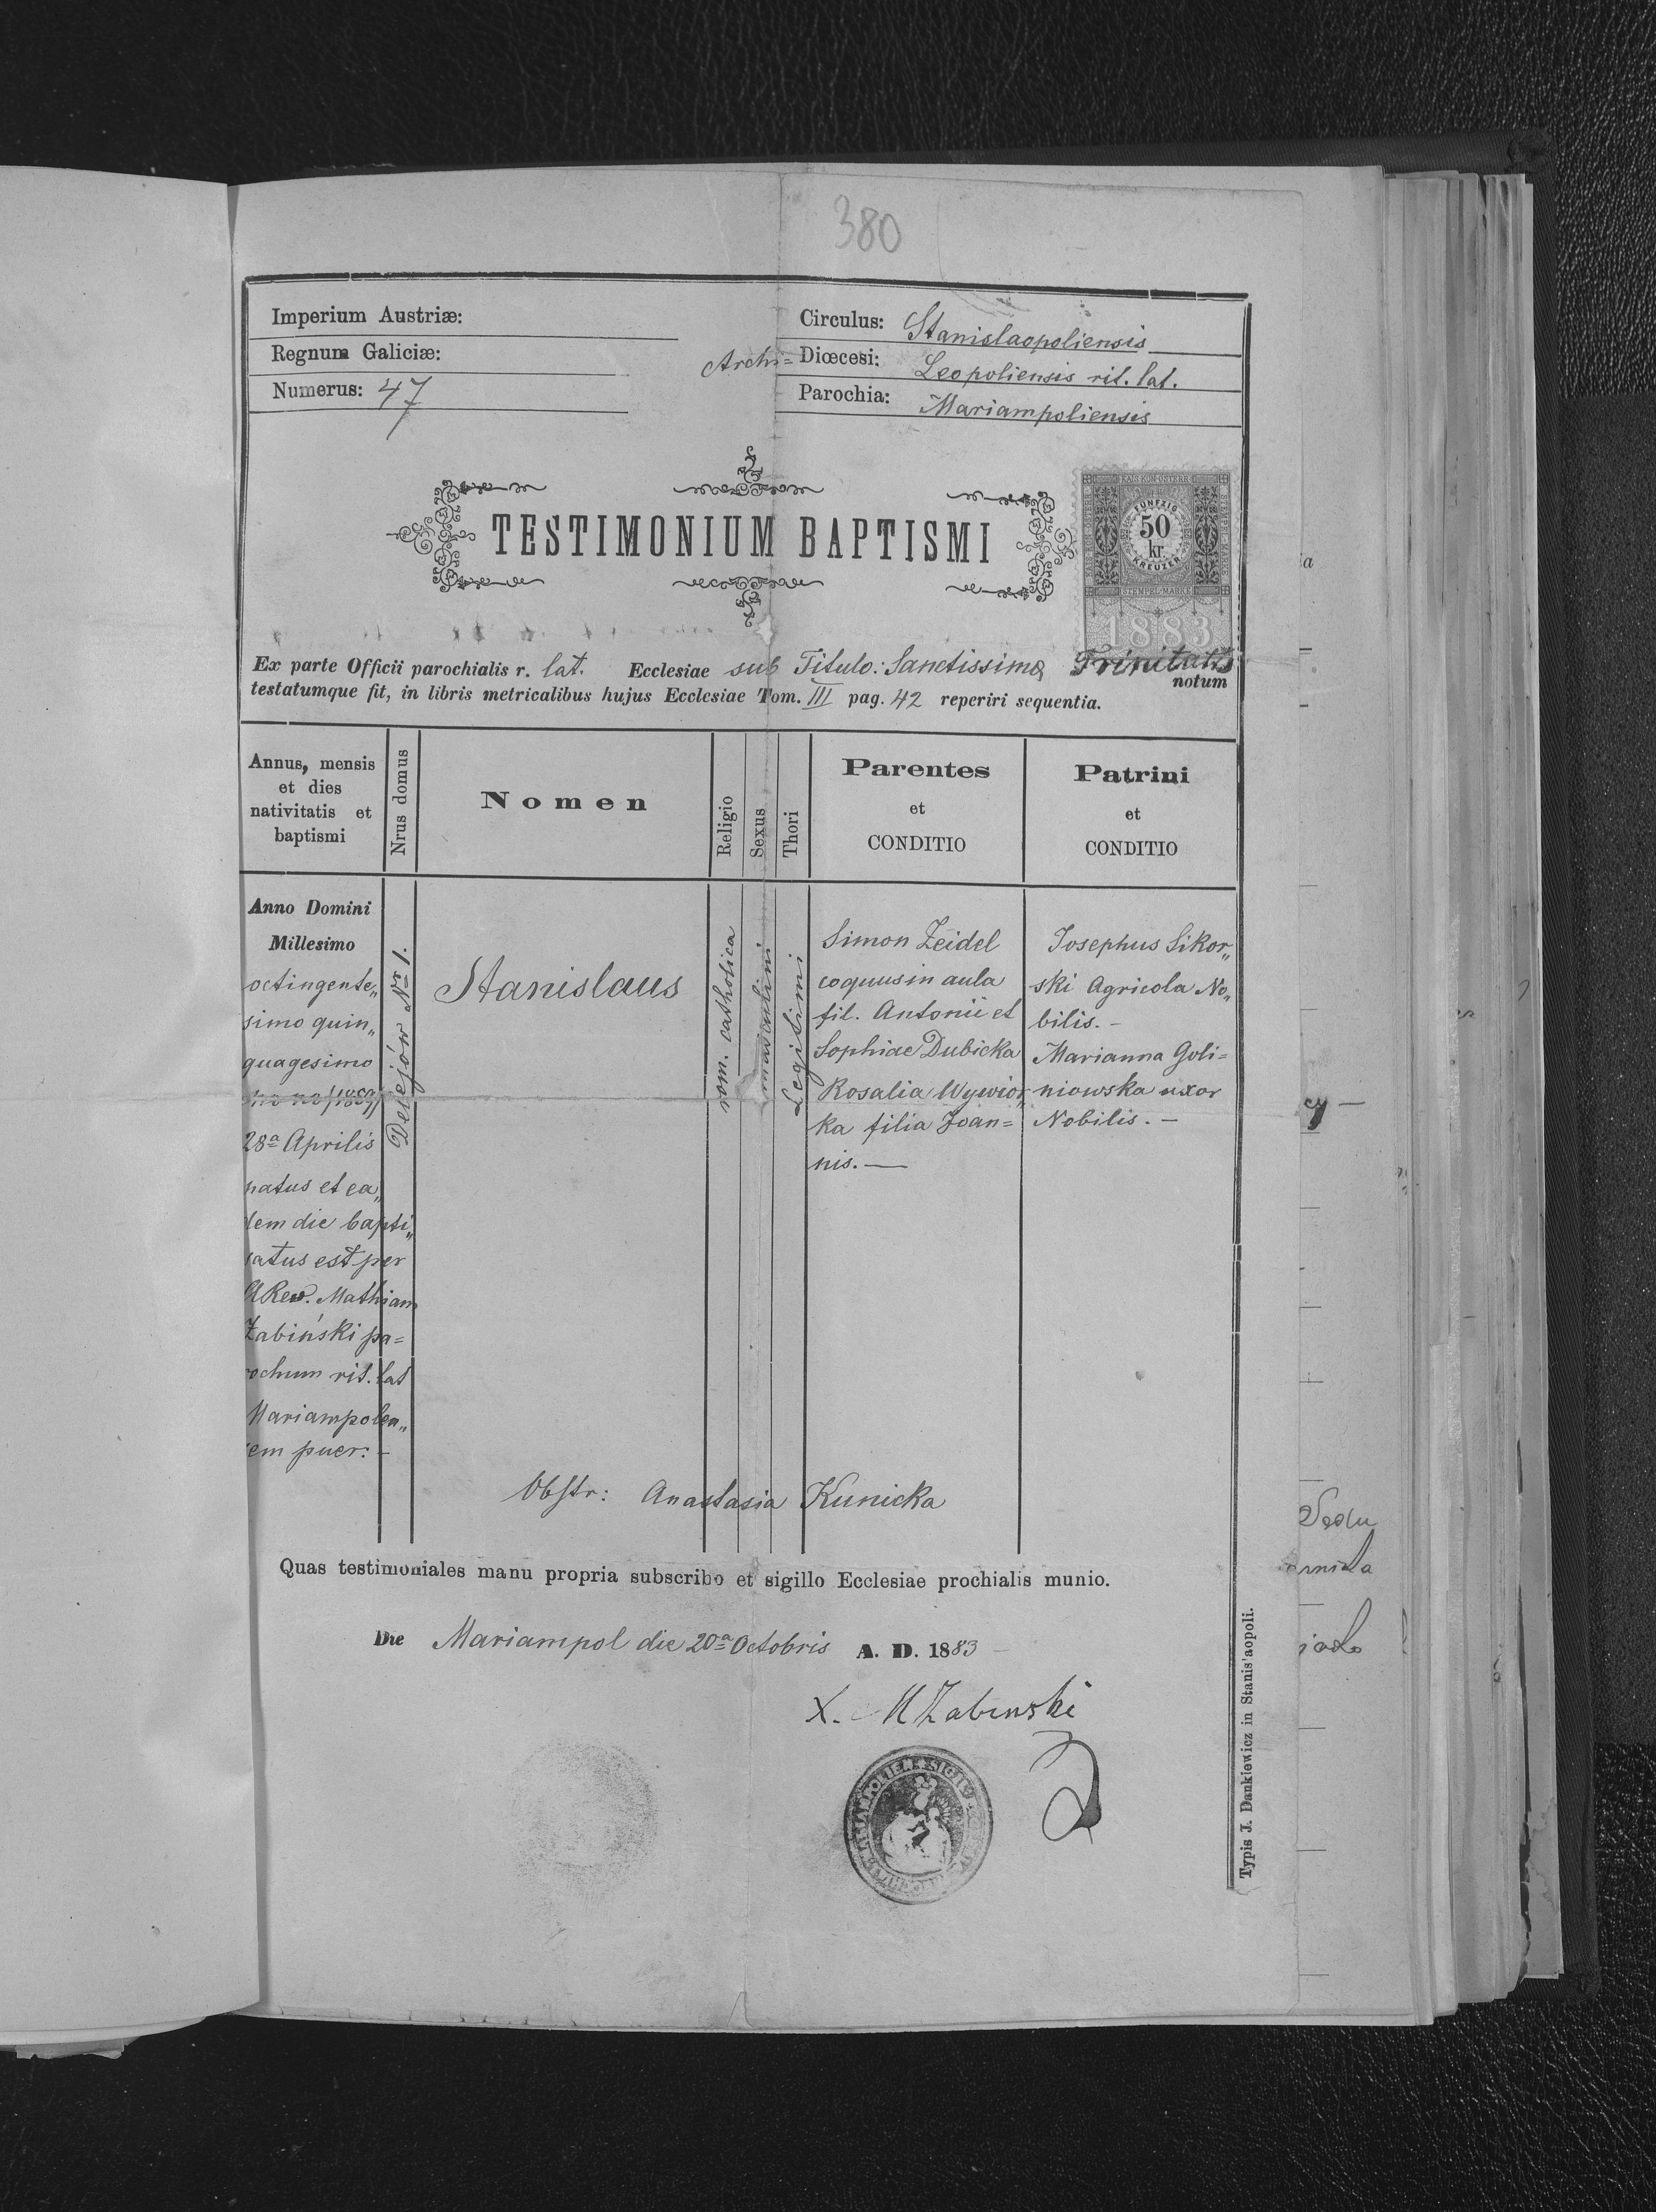 380
Imperium Austriæ:
Regnum Galiciæ:
Numerus: 47
Circulus: Stanislaopoliensis
Archi= Diœcesi: Leopoliensis rit. lat.
Parochia: Mariampoliensis
TESTIMONIUM BAPTISMI
KAIS. KÖN. ÖSTERR.
FÜNFZIG
50
kr.
KREUZER
STEMPEL-MARKE
1883
Ex parte Officii parochialis r. lat. Ecclesiae sub Titulo: Sanctissimæ Trinitatis notum
testatumque fit, in libris metricalibus hujus Ecclesiae Tom. III pag. 42 reperiri sequentia.
Annus, mensis
et dies
nativitatis et
baptismi
Nrus domus
Nomen
Religio
Sexus
Thori
Parentes
et
CONDITIO
Patrini
et
CONDITIO
Anno Domini
Millesimo
octingente„
simo quin„
quagesimo
no no /1859/
28ª Aprilis
natus et ea„
dem die bapti„
satus est per
ARev. Mathiam
Żabiński pa=
rochum rit. lat
Mariampolen„
em puer: -
Delejów Nr 1.
Stanislaus
rom. catholica
masculini
Legitimi
Simon Zeidel
coquus in aula
fil. Antonii et
Sophiae Dubicka
Rosalia Wywior„
ka filia Joan=
nis. —
Josephus Sikor„
ski Agricola No„
bilis. -
Marianna Goli=
niowska uxor
Nobilis. -
Obstr: Anastasia Kunicka
Quas testimoniales manu propria subscribo et sigillo Ecclesiae prochialis munio.
Die Mariampol die 20ª Octobris A. D. 1883 -
X. M Żabinski
Typis J. Dankiewicz in Stanisłaopoli.